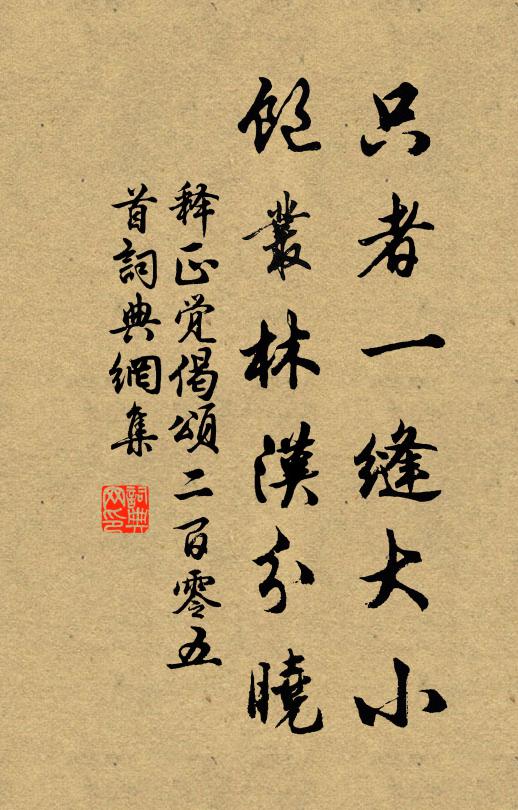 只者一缝大小
饱叢林漢分曉
释正觉偈頌二百零五
首詞典網集
詞典网印